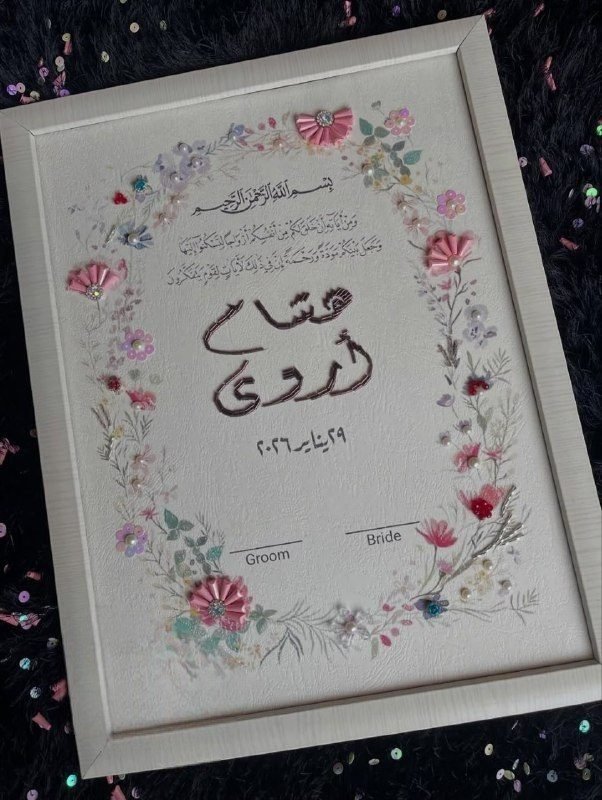 بِسْمِ اللَّهِ الرَّحْمَنِ الرَّحِيمِ
وَمِنْ آيَاتِهِ أَنْ خَلَقَ لَكُمْ مِنْ أَنْفُسِكُمْ أَزْوَاجًا لِتَسْكُنُوا إِلَيْهَا
وَجَعَلَ بَيْنَكُمْ مَوَدَّةً وَرَحْمَةً إِنَّ فِي ذَلِكَ لَآيَاتٍ لِقَوْمٍ يَتَفَكَّرُونَ
هشام
أروى
٢٩ يناير ٢٠٢٦
Groom
Bride